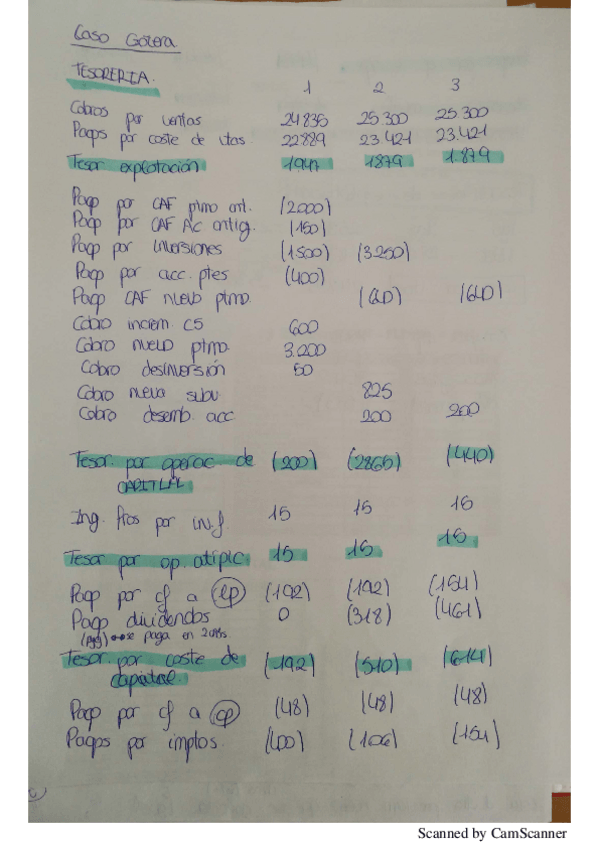 Caso Gotera
TESORERIA.
1 2 3
Cobros por ventas 24836 25.300 25.300
Pagos por coste de vtas. 22889 23.421 23.421
Tesor explotación 1.947 1879 1.879
Pago por CAF ptmo ant. (2000)
Pago por CAF Ac antig. (150)
Pago por inversiones (1500) (3.250)
Pago por acc. ptes (400)
Pago CAF nuevo ptmo. (640) (640)
Cobro increm. CS 600
Cobro nuevo ptmo. 3.200
Cobro desinversión 50
Cobro nueva subv. 825
Cobro desemb. acc 200 200
Tesor. por operac. de (200) (2865) (440)
CAPITAL
Ing. fros por inv.f. 15 15 15
Tesor por op. atípic. 15 15 15
Pago por cf a lp (192) (192) (154)
Pago dividendos 0 (318) (461)
se paga en
Tesor. por coste de (192) (510) (614)
capital.
Pago por cf a cp (48) (48) (48)
Pagos por imptos. (400) (106) (154)
Scanned by CamScanner